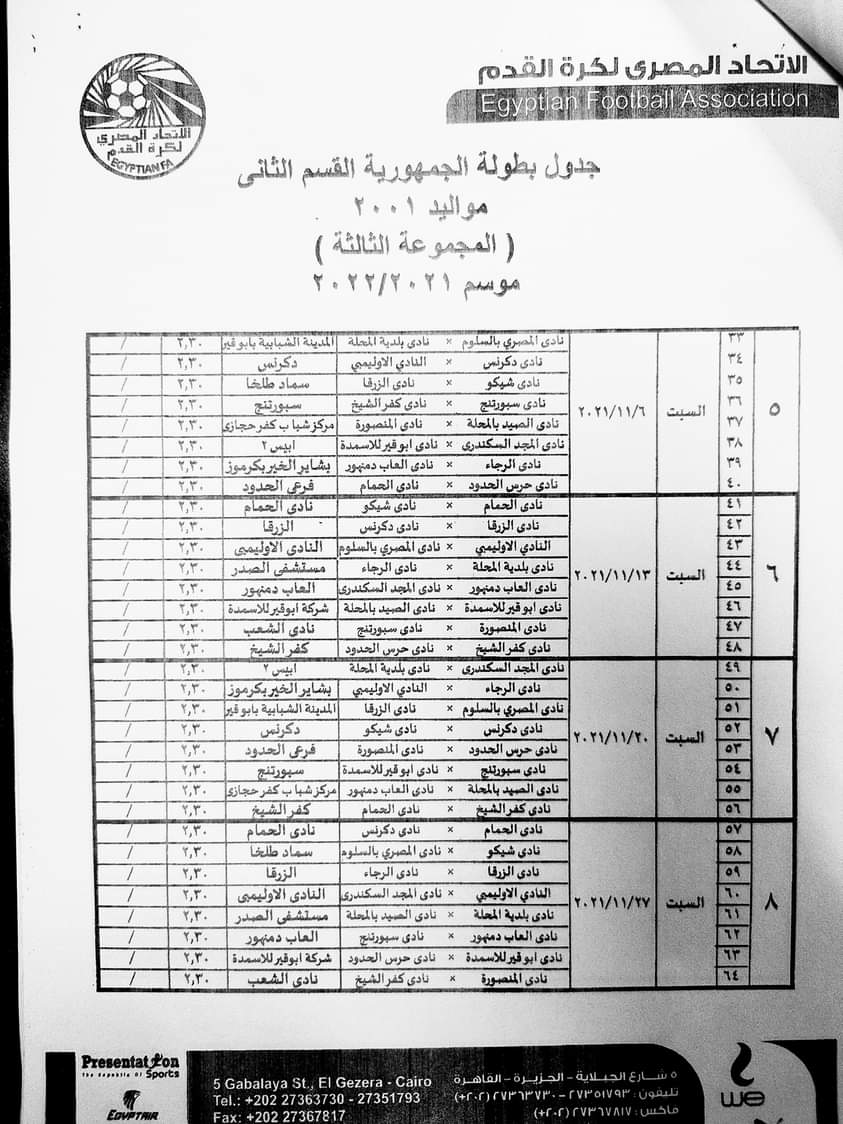 الاتحاد المصرى لكرة القدم
Egyptian Football Association
الاتحاد المصري
لكرة القدم
EGYPTIAN FA
جدول بطولة الجمهورية القسم الثانى
مواليد ٢٠٠١
( المجموعة الثالثة )
موسم ٢٠٢٢/٢٠٢١
٥ السبت ٢٠٢١/١١/٦
٣٣ نادى المصري بالسلوم × نادى بلدية المحلة المدينة الشبابية بابوقير ٢,٣٠ /
٣٤ نادى دكرنس × النادي الاوليمبي دكرنس ٢,٣٠ /
٣٥ نادى شيكو × نادى الزرقا سماد طلخا ٢,٣٠ /
٣٦ نادى سبورتنج × نادى كفر الشيخ سبورتنج ٢,٣٠ /
٣٧ نادى الصيد بالمحلة × نادى المنصورة مركز شباب كفر حجازى ٢,٣٠ /
٣٨ نادى المجد السكندرى × نادى ابوقير للاسمدة ابيس ٢ ٢,٣٠ /
٣٩ نادى الرجاء × نادى العاب دمنهور بشاير الخير بكرموز ٢,٣٠ /
٤٠ نادى حرس الحدود × نادى الحمام فرعى الحدود ٢,٣٠ /
٦ السبت ٢٠٢١/١١/١٣
٤١ نادى الحمام × نادى شيكو نادى الحمام ٢,٣٠ /
٤٢ نادى الزرقا × نادى دكرنس الزرقا ٢,٣٠ /
٤٣ النادي الاوليمبي × نادى المصري بالسلوم النادى الاوليمبى ٢,٣٠ /
٤٤ نادى بلدية المحلة × نادى الرجاء مستشفى الصدر ٢,٣٠ /
٤٥ نادى العاب دمنهور × نادى المجد السكندرى العاب دمنهور ٢,٣٠ /
٤٦ نادى ابوقير للاسمدة × نادى الصيد بالمحلة شركة ابوقير للاسمدة ٢,٣٠ /
٤٧ نادى المنصورة × نادى سبورتنج نادى الشعب ٢,٣٠ /
٤٨ نادى كفر الشيخ × نادى حرس الحدود كفر الشيخ ٢,٣٠ /
٧ السبت ٢٠٢١/١١/٢٠
٤٩ نادى المجد السكندرى × نادى بلدية المحلة ابيس ٢ ٢,٣٠ /
٥٠ نادى الرجاء × النادي الاوليمبي بشاير الخير بكرموز ٢,٣٠ /
٥١ نادى المصري بالسلوم × نادى الزرقا المدينة الشبابية بابوقير ٢,٣٠ /
٥٢ نادى دكرنس × نادى شيكو دكرنس ٢,٣٠ /
٥٣ نادى حرس الحدود × نادى المنصورة فرعى الحدود ٢,٣٠ /
٥٤ نادى سبورتنج × نادى ابوقير للاسمدة سبورتنج ٢,٣٠ /
٥٥ نادى الصيد بالمحلة × نادى العاب دمنهور مركز شباب كفر حجازى ٢,٣٠ /
٥٦ نادى كفر الشيخ × نادى الحمام كفر الشيخ ٢,٣٠ /
٨ السبت ٢٠٢١/١١/٢٧
٥٧ نادى الحمام × نادى دكرنس نادى الحمام ٢,٣٠ /
٥٨ نادى شيكو × نادى المصري بالسلوم سماد طلخا ٢,٣٠ /
٥٩ نادى الزرقا × نادى الرجاء الزرقا ٢,٣٠ /
٦٠ النادي الاوليمبي × نادى المجد السكندرى النادى الاوليمبى ٢,٣٠ /
٦١ نادى بلدية المحلة × نادى الصيد بالمحلة مستشفى الصدر ٢,٣٠ /
٦٢ نادى العاب دمنهور × نادى سبورتنج العاب دمنهور ٢,٣٠ /
٦٣ نادى ابوقير للاسمدة × نادى حرس الحدود شركة ابوقير للاسمدة ٢,٣٠ /
٦٤ نادى المنصورة × نادى كفر الشيخ نادى الشعب ٢,٣٠ /
Presentation
The Republic Of Sports
EGYPTAIR
5 Gabalaya St., El Gezera - Cairo
Tel.: +202 27363730 - 27351793
Fax: +202 27367817
٥ شارع الجبلاية - الجزيرة - القاهرة
تليفون : ٢٧٣٥١٧٩٣ - ٢٧٣٦٣٧٣٠ (٢٠٢+)
فاكس : ٢٧٣٦٧٨١٧ (٢٠٢+)
we